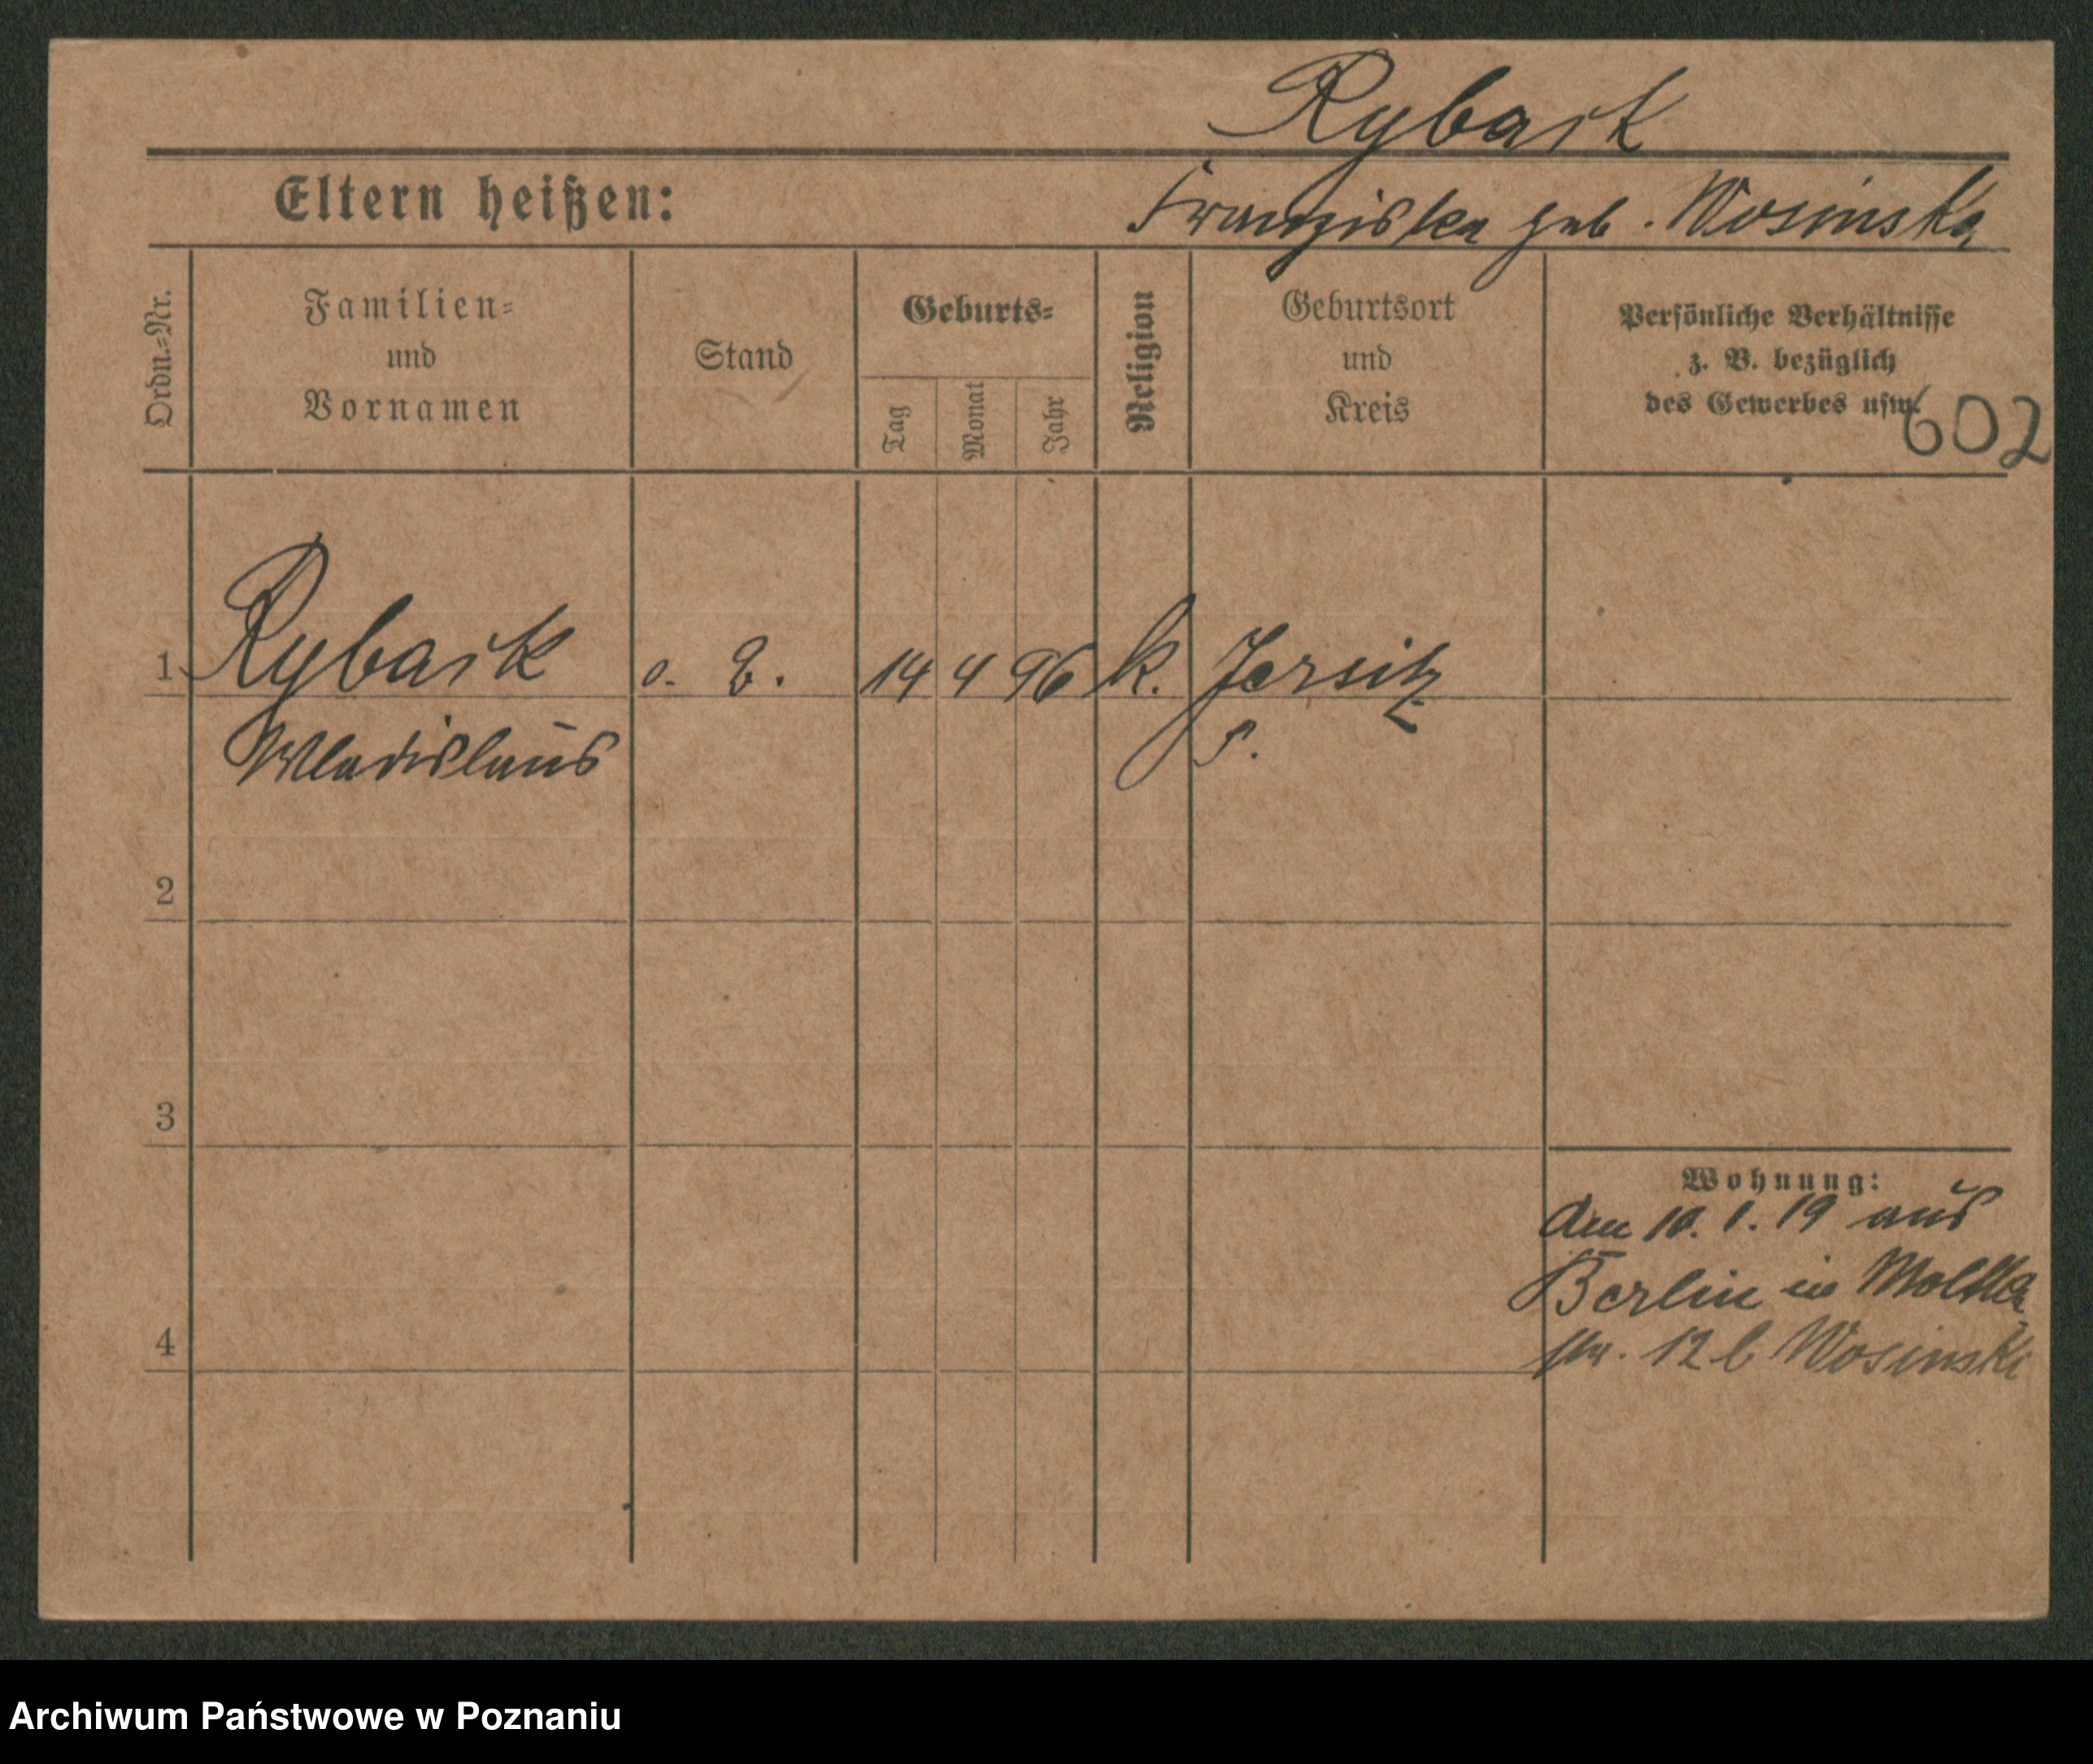 Rybark
Eltern heißen:
Franziska geb. Wosinska
Ordn.=Nr.
Familien=
und
Vornamen
Stand
Geburts=
Tag
Monat
Jahr
Religion
Geburtsort
und
Kreis
Persönliche Verhältnisse
z. B. bezüglich
des Gewerbes usw.
602
1 Rybark o. 14 4 96 k. Jersitz
Wladislaus
2
3
Wohnung:
den 10. 1. 19 aus
Berlin in Moltke
4
str. 12 b Wosinski
Archiwum Państwowe w Poznaniu